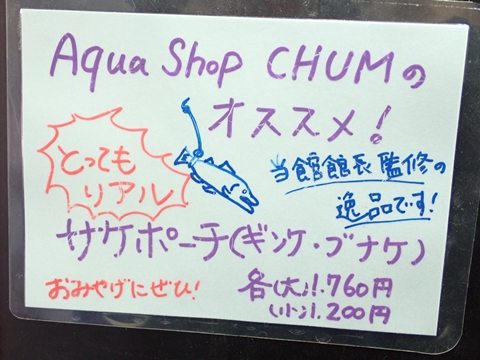 Aqua Shop CHUMの
オススメ!
とっても
リアル
当館館長監修の
逸品です!
サケポーチ(ギンケ・ブナケ)
おみやげにぜひ!
各(大)1.760円
(小)1.200円